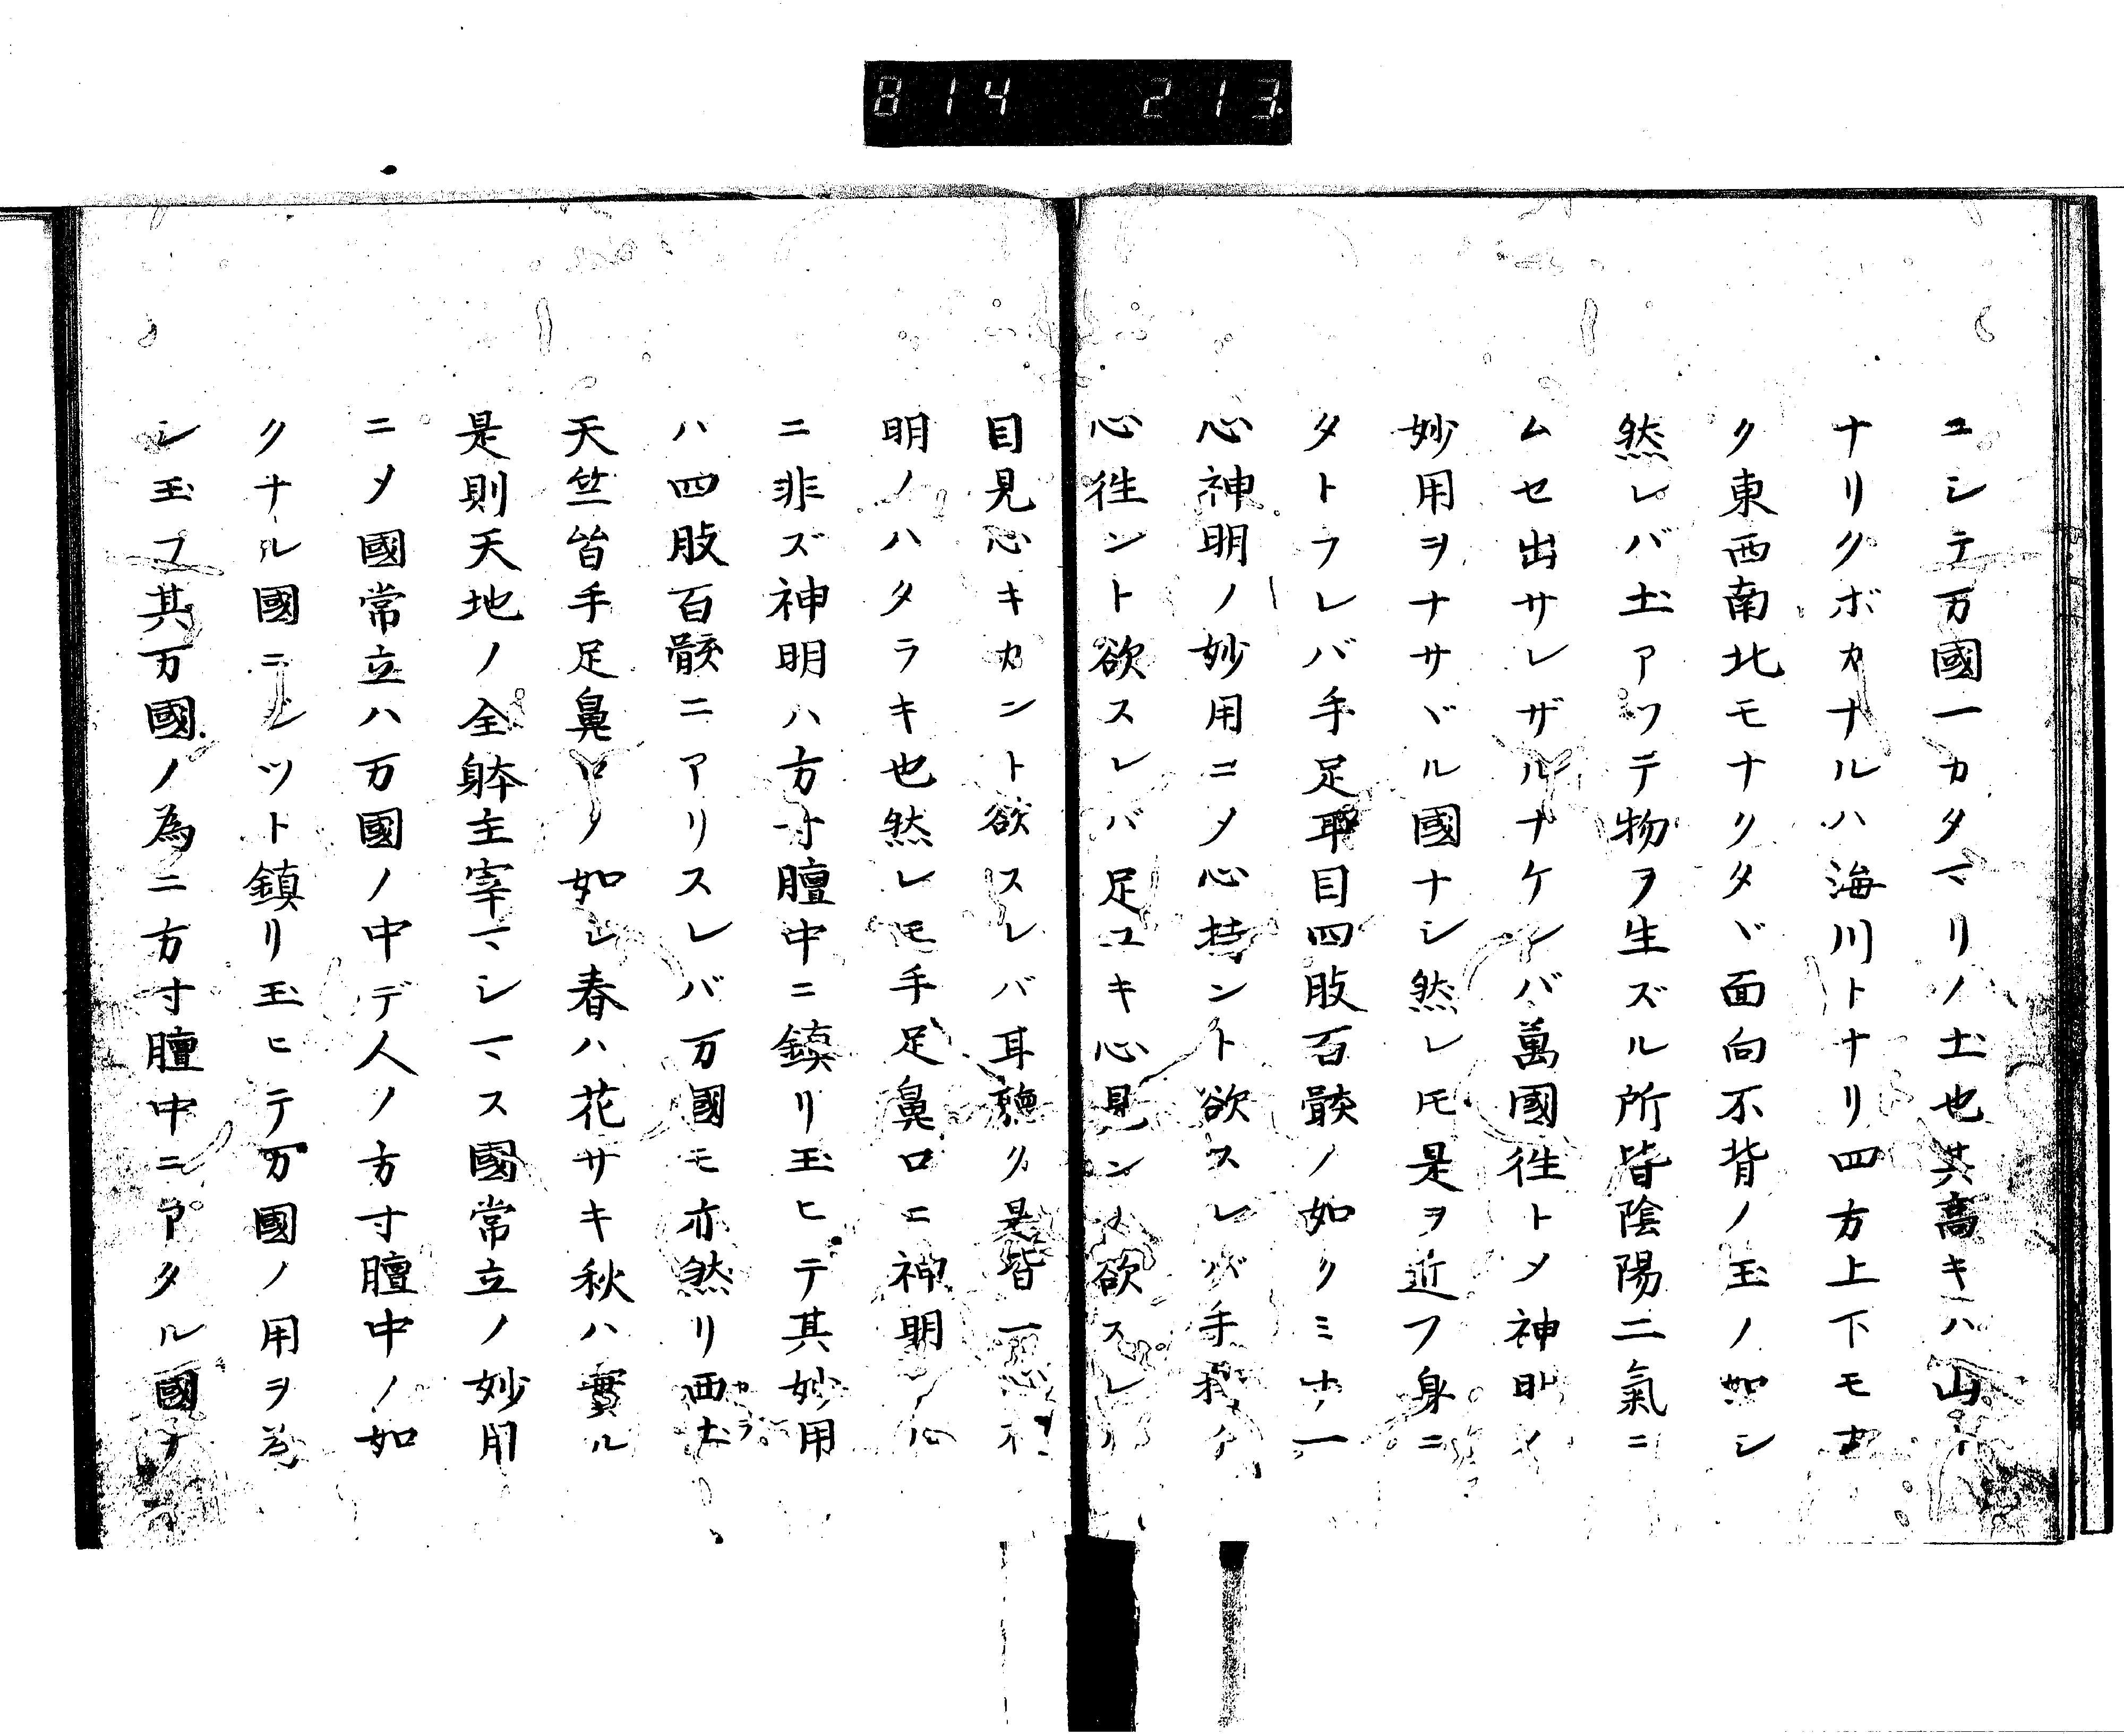 814 213
ユシテ万國一カタマリノ土也其高キハ山ト
ナリクボカナルハ海川トナリ四方上下モナ
ク東西南北モナクタヾ面向不背ノ玉ノ如シ
然レバ土アツテ物ヲ生ズル所皆陰陽二氣ニ
ムセ出サレザルナケレバ萬國徃トメ神明ノ
妙用ヲナサヾル國ナシ然レ𪜈是ヲ近フ身ニ
タトフレバ手足耳目四肢百骸ノ如クミナ一
心神明ノ妙用ニメ心持ント欲スレバ手
心徃ント欲スレバ足ユキ心見ント欲スレバ
目見心キカント欲スレバ耳聽ク是皆一心
明ノハタラキ也然レ𪜈手足鼻口ニ神明ノ
ニ非ズ神明ハ方寸膻中ニ鎮リ玉ヒテ其妙用
ハ四肢百骸ニアリスレバ万國モ亦然リ西土カラ
天竺皆手足鼻口ノ如シ春ハ花サキ秋ハ實ル
是則天地ノ全躰主宰マシマス國常立ノ妙用
ニメ國常立ハ万國ノ中デ人ノ方寸膻中ノ如
クナル國ニシツト鎮リ玉ヒテ万國ノ用ヲ為
シ玉フ其万國ノ為ニ方寸膻中ニアタル國ナ